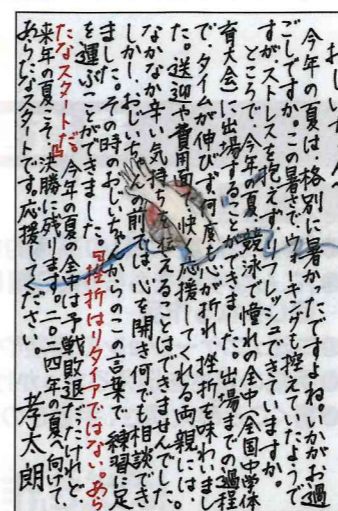 おじいちゃんへ
今年の夏は、格別に暑かったですよね。いかがお過
ごしですか。この暑さで、ウォーキングも控えていたようで
すが、ストレスを抱えず、リフレッシュできていますか。
ところで、今年の夏、競泳で憧れの全中(全国中学体
育大会)に出場することができました。出場までの過程
で、タイムが伸びず何度も心が折れ、挫折を味わいまし
た。送迎や費用面で快く応援してくれる両親には、
なかなか辛い気持ちを伝えることはできませんでした。
しかし、おじいちゃんの前では、心を開き何でも相談でき
ました。その時のおじいちゃんからのこの言葉で、練習に足
を運ぶことができました。『挫折はリタイアではない。あら
たなスタートだ。』今年の夏の全中は予戦敗退だったけれど、
来年の夏こそ、決勝に残ります。二〇二四年の夏へ向けて、
あらたなスタートです。応援してください。
孝太朗